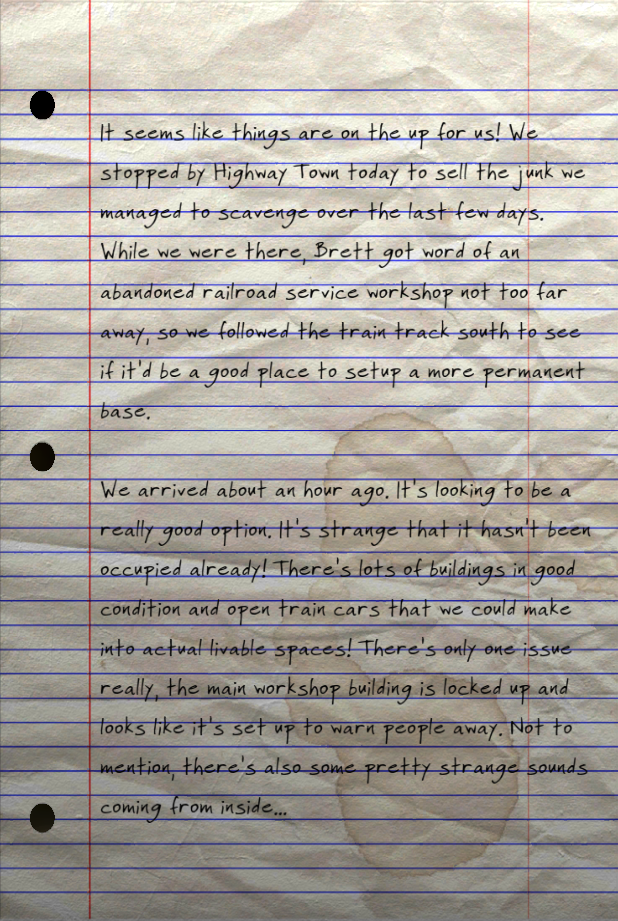 It seems like things are on the up for us! We
stopped by Highway Town today to sell the junk we
managed to scavenge over the last few days.
While we were there, Brett got word of an
abandoned railroad service workshop not too far
away, so we followed the train track south to see
if it'd be a good place to setup a more permanent
base.
We arrived about an hour ago. It's looking to be a
really good option. It's strange that it hasn't been
occupied already! There's lots of buildings in good
condition and open train cars that we could make
into actual livable spaces! There's only one issue
really, the main workshop building is locked up and
looks like it's set up to warn people away. Not to
mention, there's also some pretty strange sounds
coming from inside...